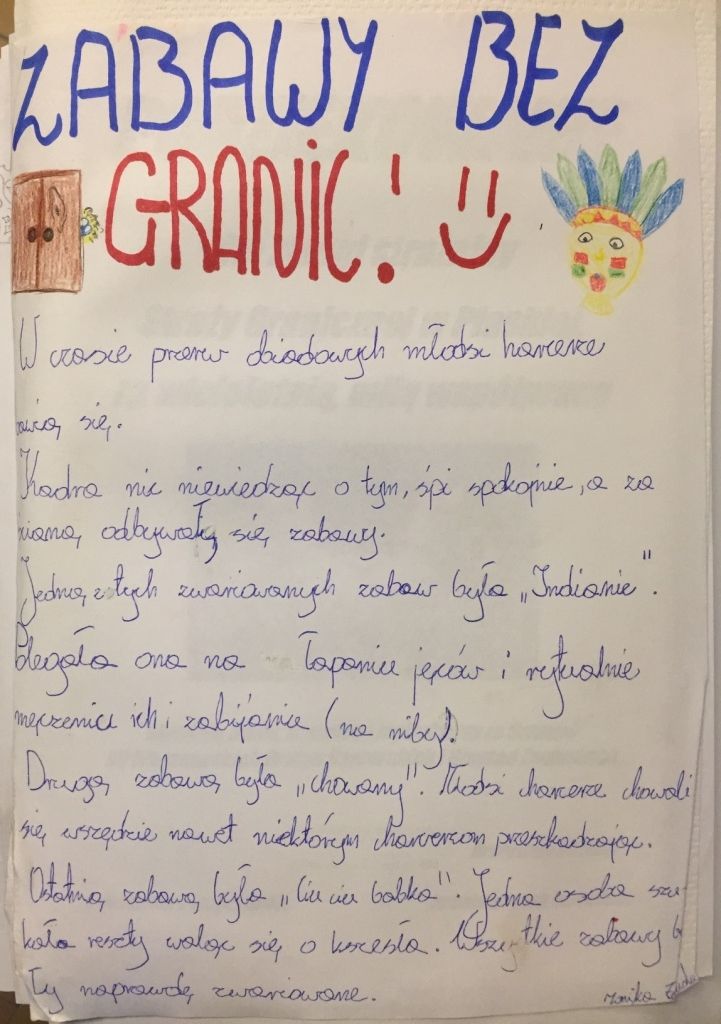 ZABAWY BEZ
GRANIC!
W czasie przerw obiadowych młodsi harcerze
bawią się.
Kadra nic niewiedząc o tym, śpi spokojnie, a za
ścianą odbywały się zabawy.
Jedną z tych zwariowanych zabaw była „Indianie".
Polegała ona na łapaniu jeńców i rytualnie
męczeniu ich i zabijanie (na niby).
Drugą zabawą była „chowany". Młodsi harcerze chowali
się wszędzie nawet niektórym harcerzom przeszkadzając.
Ostatnią zabawą była „Ciu ciu babka". Jedna osoba szu-
kała reszty waląc się o krzesła. Wszystkie zabawy by
ły naprawdę zwariowane.
Monika